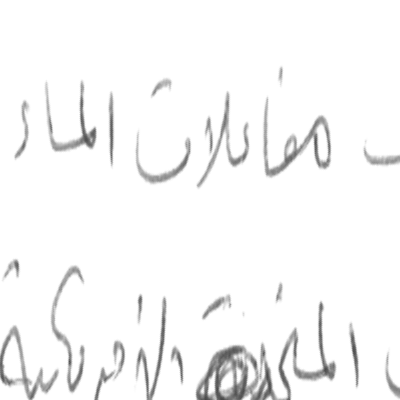 مفاعلات الماء
المتحدة الأمريكية